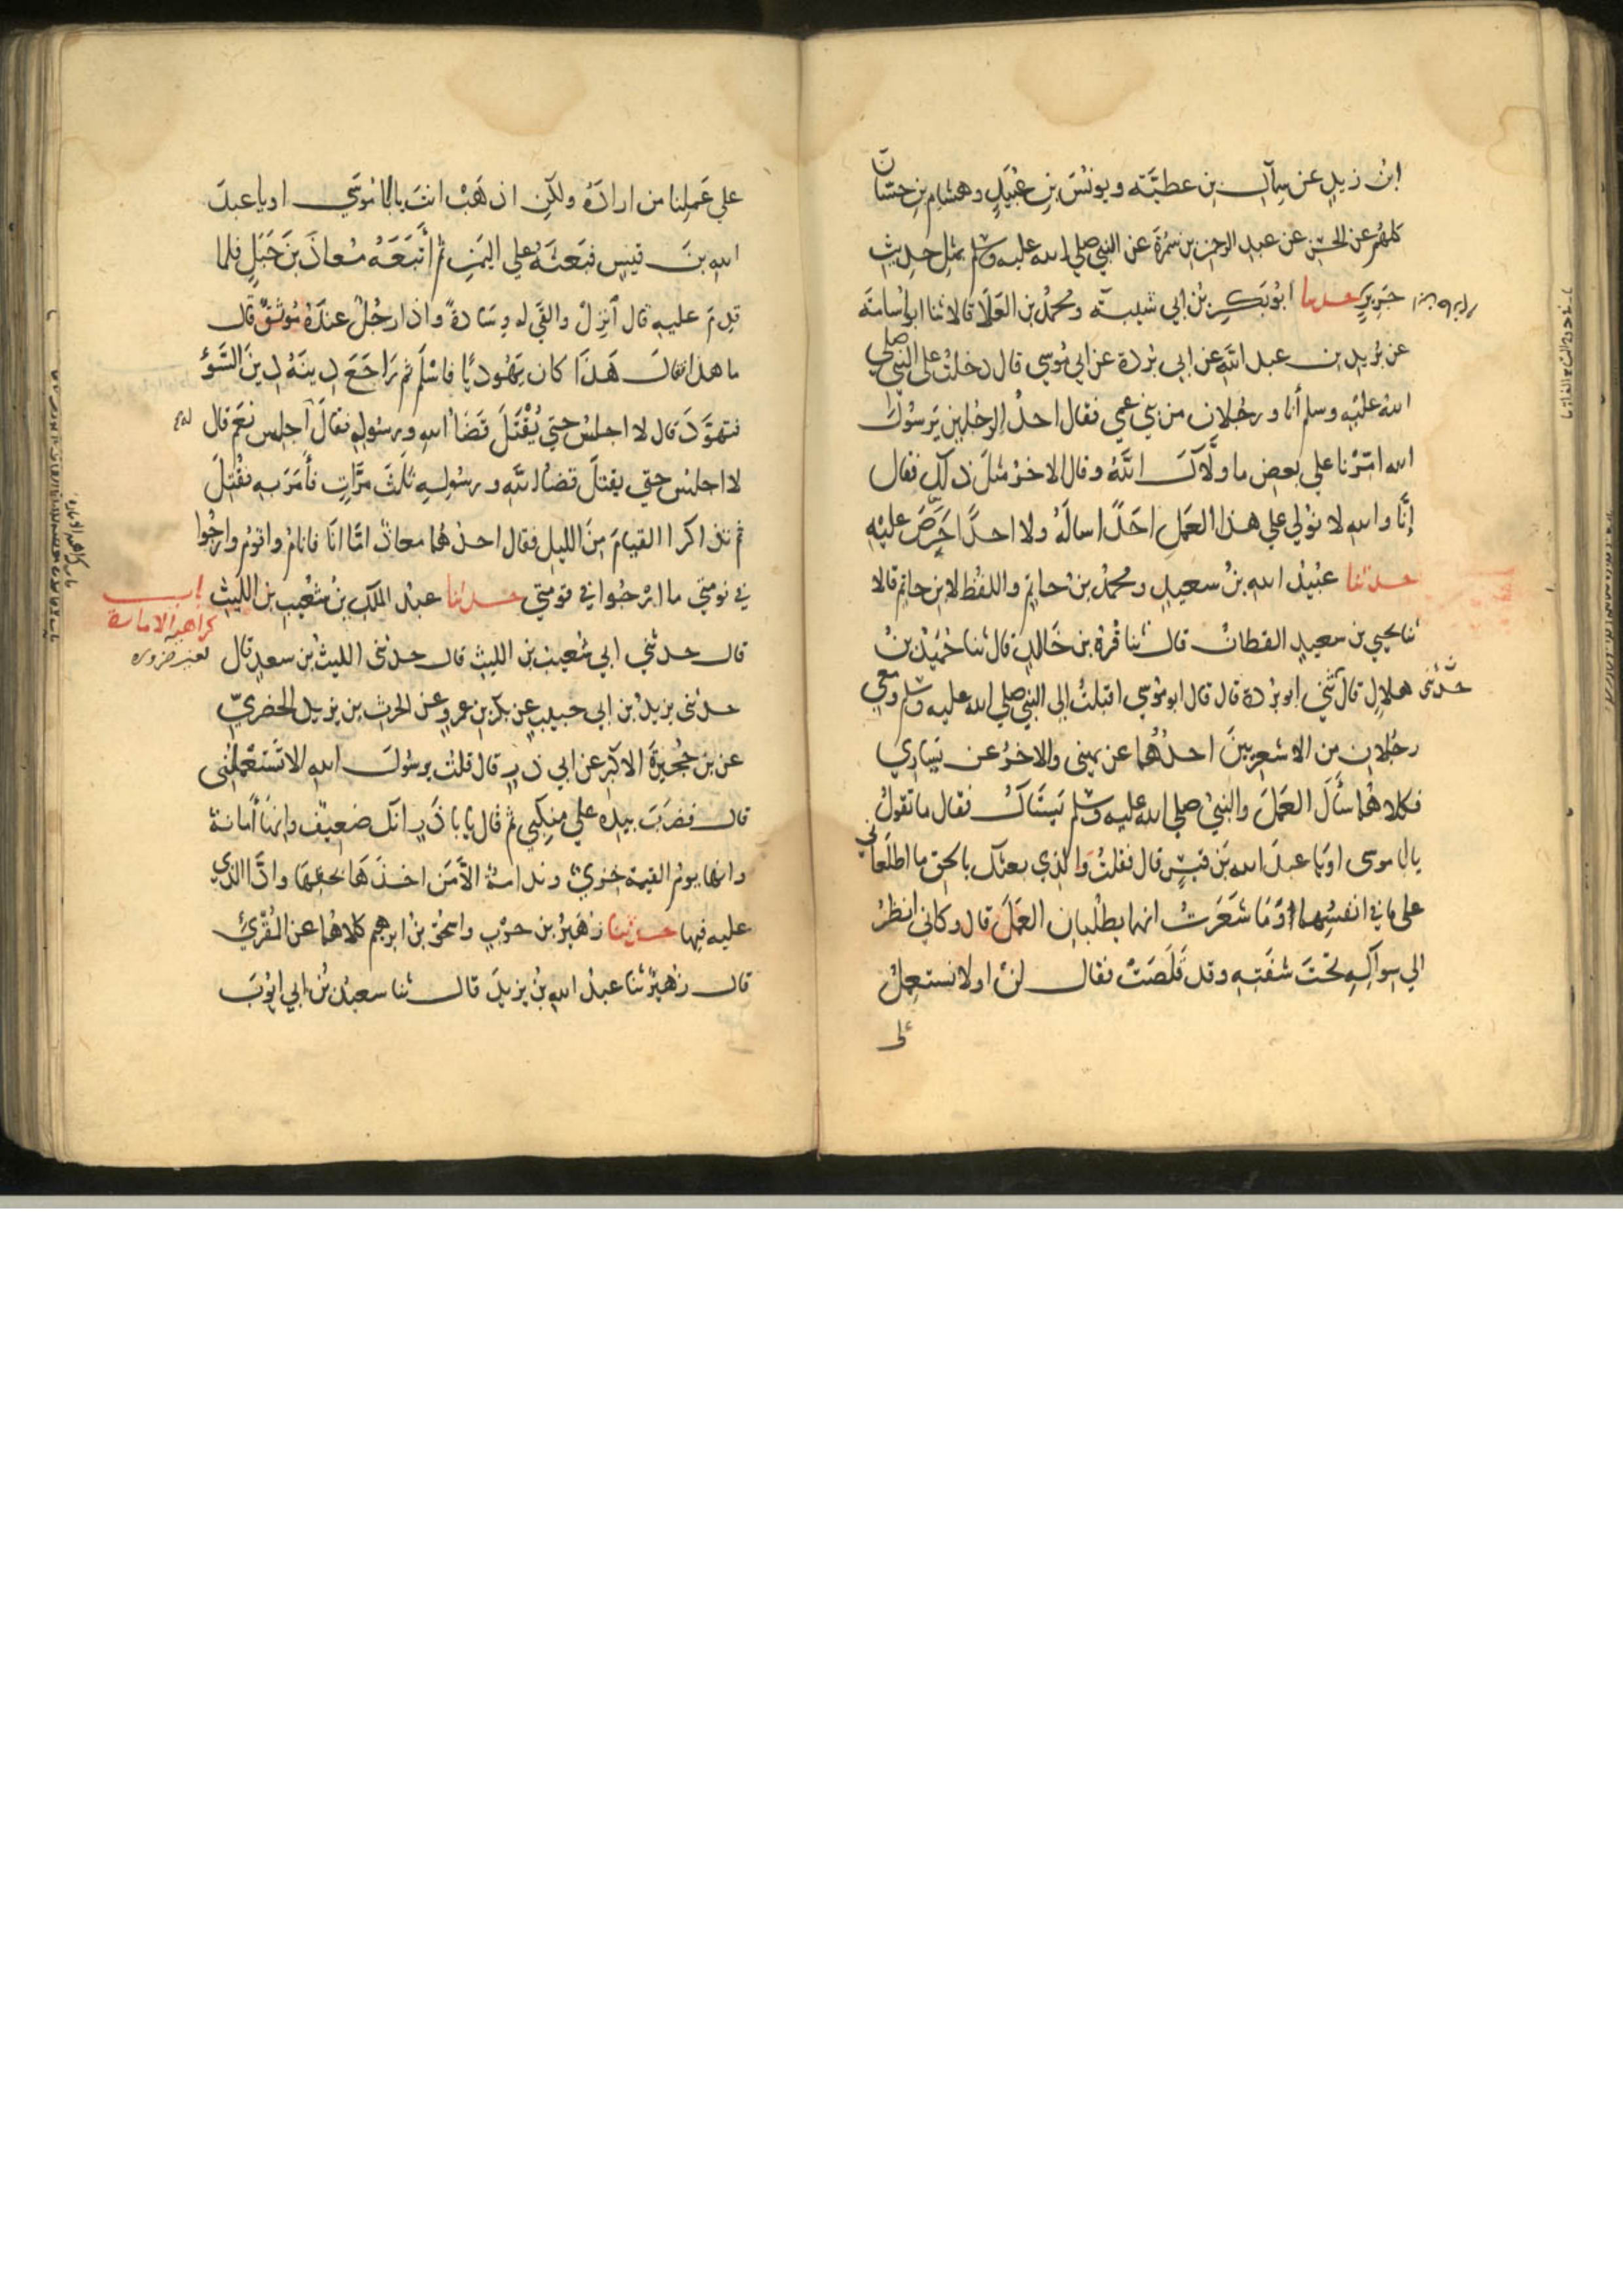 ابن زيدٍ عن سِمَاكِ بن عطيَّة ويونسَ بن عُبَيدٍ وهشامِ بن حسّان
كلهُم عن الحسَن عن عبد الرحمن بن سَمُرةَ عن النبي صلى الله عليه وسلم بمثل حديث
جَريرٍ حدثنا ابُو بَكرِ بنُ ابي شَيبة ومحمدُ بن العَلَا قالا ثنا ابو أسامَة
عن بُرَيدِ بن عبد الله عن ابي بُردة عن ابي مُوسي قال دخلتُ على النبي صلي
اللهُ عليه وسلم أنا ورجُلانِ من بَني عمي فقال احدُ الرجُلين يَرسُولَ
الله امّرنا علي بعض ما ولّاكَ اللهُ وقال الاخرُ مثلَ ذلك فقال
إنَّا والله لا نُولي علي هذا العَمل احَدًا سالَهُ ولا احدًا حَرَصَ عليْه
حدثنا عُبَيدُ اللهِ بنُ سعيدٍ ومحمدُ بن حاتمٍ واللفظ لابن حاتم قالا
ثنا يحيي بن سعيدٍ القطانُ قال ثنا قُرةُ بن خالدٍ قال ثنا حُمَيدُ بنُ
هلالٍ قال ثني ابو بُردة قال قال ابو مُوسي اقبلتُ الى النبي صلي الله عليه وسلم ومعي
حدثنى
رجُلانِ من الاشعريينَ احدُهُما عن يميني والاخرُ عن يَسَاري
فكلاهُما سَأَلَ العَمَلَ والنبيُ صلي الله عليه وسلم يَستَاكُ فقال ما تقولُ
يابا موسى او يا عبدَ الله بن قيسٍ قال فقلتُ والذي بعثك بالحق ما اطلَعَاني
على ما في انفسِهِما وَمَا شَعَرتُ انهما يطلُبان العَمَلَ قال وكاني انظرُ
الي سِوَاكِهِ تحْتَ شفَتِهِ وقد قَلَصَتْ فقال لنْ او لا نستعملُ
على
علي عَمَلِنا من ارادَهُ ولكن اذهَبْ انتَ يابا مُوسَي او يا عبدَ
الله بنَ قيسٍ فبَعَثَهُ علي اليَمَنِ ثم أَتْبَعَهُ مُعاذَ بنَ جَبَلٍ فلما
قدِمَ عليه قال انزِلْ والقَى له وِسَادةً واذا رجُلٌ عندَهُ مُوثَقٌ قال
ما هذا قال هَذَا كان يَهُوديًا فاسْلَمَ ثم رَاجَعَ دِينَهُ دِينَ السَّوءِ
فتهوَّدَ قال لا اجلسُ حتي يُقْتَلَ قَضَاُ الله ورسُولِهِ فقالَ اجلس نَعَم قال
لا اجلس حتى يقتلَ قضاُ الله ورسُولِهِ ثَلثَ مرّاتٍ فأمَرَ به فقُتِلَ
ثم تذاكرا القيامَ مِنَ الليلِ فقال احدُهُما معاذٌ امّا انَا فانامُ واقومُ وارجُوا
في نومَتي ما ارْجُوا في قومَتي حدثنا عبدُ الملك بنُ شُعَيب بن الليث
باب
كراهية الامارة
لغير ضرورة
قال حدثني ابي شُعيبُ بن الليث قال حدثني الليثُ بن سعدٍ قال
حدثنى يزيدُ بن ابي حبيبٍ عن بكر بن عمروٍ عن الحرث بن يزيد الحضرميّ
عن بن حُجَيرَةَ الاكبَر عن ابي ذرٍ قال قلتُ يرسُولَ الله الا تَستَعْملُنى
قال فضرَبَ بيدِه علي منكِبي ثم قال يابا ذَرٍ انّك ضعيفٌ وانها أمَانة
وانها يومَ القيمة خزيٌ ونَدامةٌ الا مَن اخذَهَا بحقِهَا وادَّا الذي
عليه فيها حدثنا زُهَيرُ بن حربٍ واسحق بنُ ابرهيم كلاهُما عن المُقْرئ
قال زُهيرٌ ثنا عبدُ الله بنُ يزيدَ قال ثنا سعيدُ بنُ ابي ايوبَ